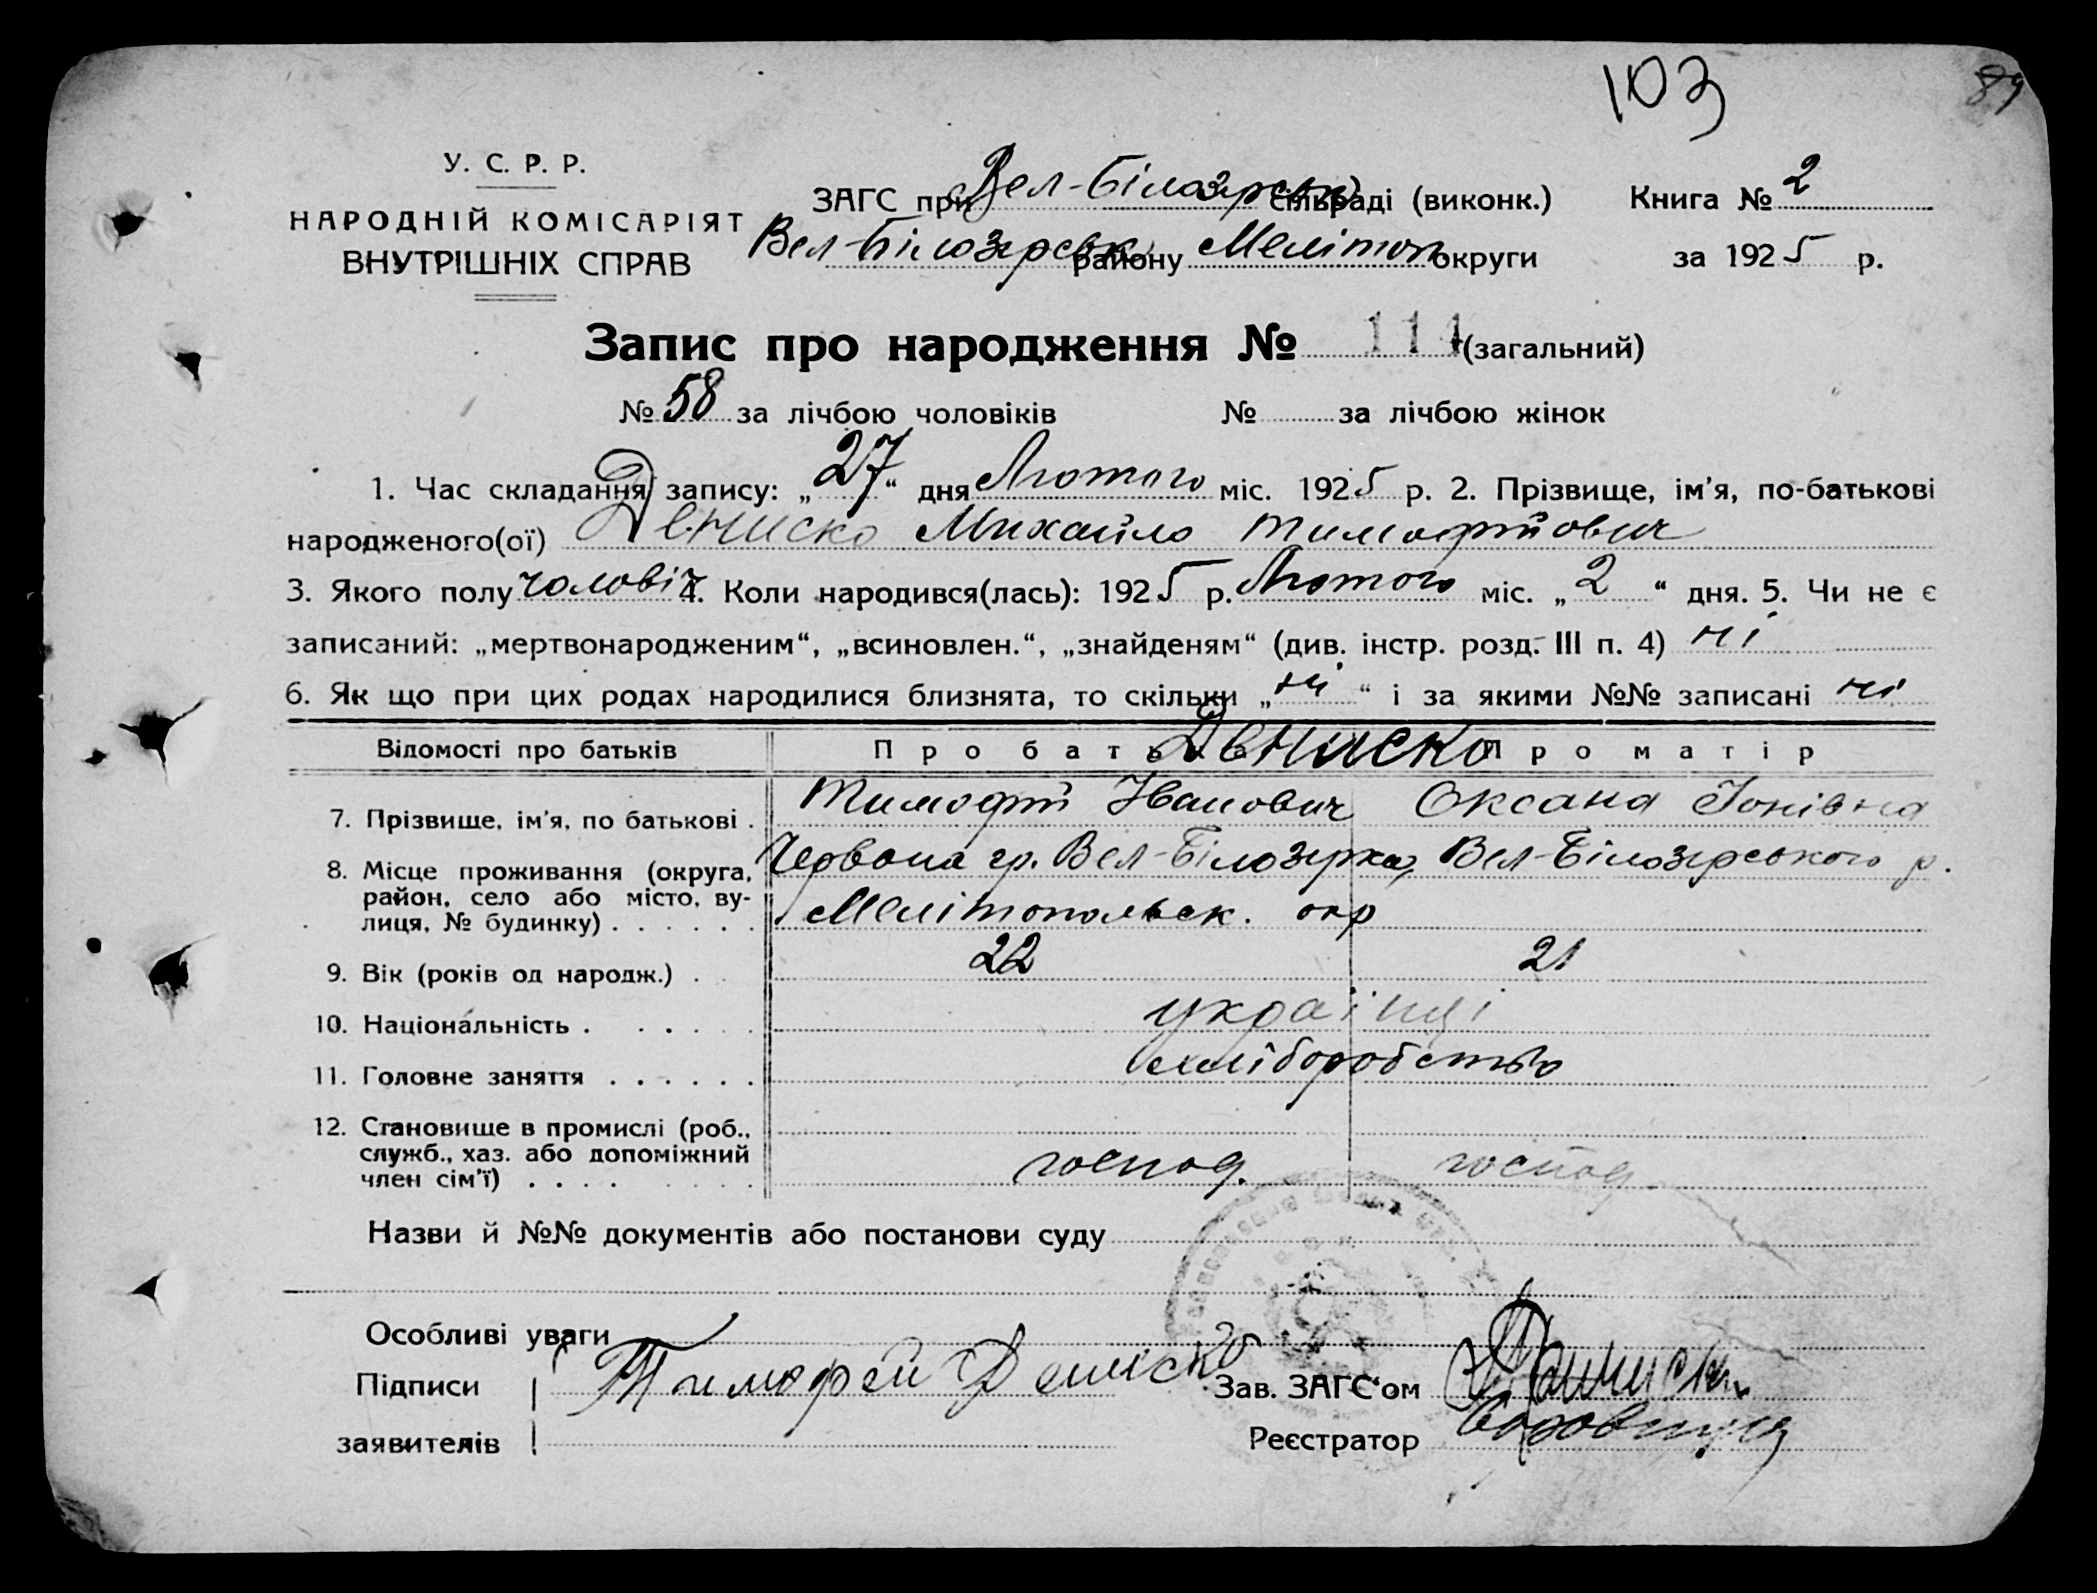 103
89
У. С. Р. Р.
НАРОДНІЙ КОМІСАРІЯТ
ВНУТРІШНІХ СПРАВ
ЗАГС при Вел-Білозерськ сільраді (виконк.) Книга № 2
Вел-Білозерськ району Меліто­п округи за 1925 р.
Запис про народження № 111 (загальний)
№ 58 за лічбою чоловіків № за лічбою жінок
1. Час складання запису: „27“ дня Лютого міс. 1925 р. 2. Прізвище, ім'я, по-батькові
народженого(ої) Дениско Михайло Тимофійович
3. Якого полу чоловіч 4. Коли народився(лась): 1925 р. Лютого міс. „2“ дня. 5. Чи не є
записаний: „мертвонародженим“, „всиновлен.“, „знайденям“ (див. інстр. розд. III п. 4) ні
6. Як що при цих родах народилися близнята, то скільки „ні“ і за якими №№ записані ні
Відомості про батьків Про батька Про матір
Дениско
7. Прізвище, ім'я, по батькові . Тимофій Іванович Оксана Іонівна
8. Місце проживання (округа, Червона гр. Вел-Білозерка, Вел-Білозерського р.
район, село або місто, ву-
лиця, № будинку) . . . . . . Мелітопольськ. окр
9. Вік (років од народж.) . 22 21
10. Національність . . . . . . українці
11. Головне заняття . . . . . . хліборобство
12. Становище в промислі (роб.,
служб., хаз. або допоміжний
член сім'ї) . . . . господ. господ.
Назви й №№ документів або постанови суду
Особливі уваги
Підписи Тимофей Дениско Зав. ЗАГС'ом
заявителів Реєстратор